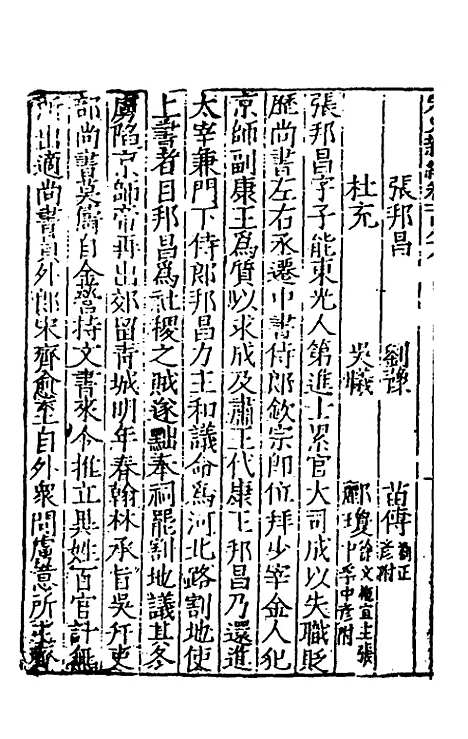 張邦昌　劉豫　苗傅劉正彦附
杜充　吳曦　酈瓊徐文施宜生張中孚中彦附
張邦昌字子能東光人第進士累官大司成以失職貶
歷尚書左右丞遷中書侍郎欽宗即位拜少宰金人犯
京師副康王爲質以求成及肅王代康王邦昌乃還進
太宰兼門下侍郎邦昌力主和議命爲河北路割地使
上書者曰邦昌爲社稷之賊遂黜奉祠罷割地議其冬
虜陷京師帝再出郊留青城明年春翰林承旨吳幵吏
部尚書莫儔自金營持文書來令推立異姓百官計無
所出適尚書員外郎宋齊愈至自外衆問虜意所主齊